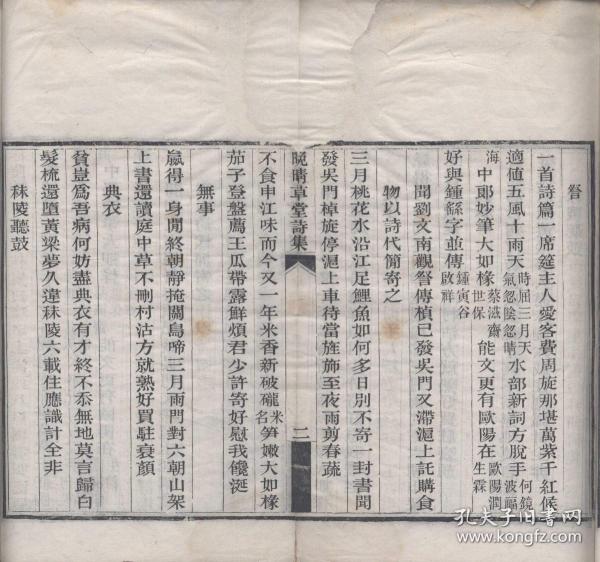 詧
一首詩篇一席筵主人愛客費周旋那堪萬紫千紅候
適値五風十雨天時屆三月天氣忽陰忽晴水部新詞方脫手何鏡海波福
中郞妙筆大如椽蔡滋齋世保能文更有歐陽在歐陽潤生霖
好與鍾繇字並傳鍾寅谷啟祥
聞劉文南觀詧傳楨已發吳門又滯滬上託購食
物以詩代簡寄之
三月桃花水沿江足鯉魚如何多日別不寄一封書聞
發吳門棹旋停滬上車待當旌旆至夜雨剪春蔬
晚晴草堂詩集
二
不食申江味而今又一年米香新破礲米名笋嫩大如椽
茄子登盤薦王瓜帶露鮮煩君少許寄好慰我饞涎
無事
贏得一身閒終朝靜掩關鳥啼三月雨門對六朝山架
上書還讀庭中草不刪村沽方就熟好買駐衰顏
典衣
貧豈爲吾病何妨盡典衣有才終不忝無地莫言歸白
髮梳還墮黃粱夢久違秣陵六載住應識計全非
秣陵聽鼓
孔夫子旧书网